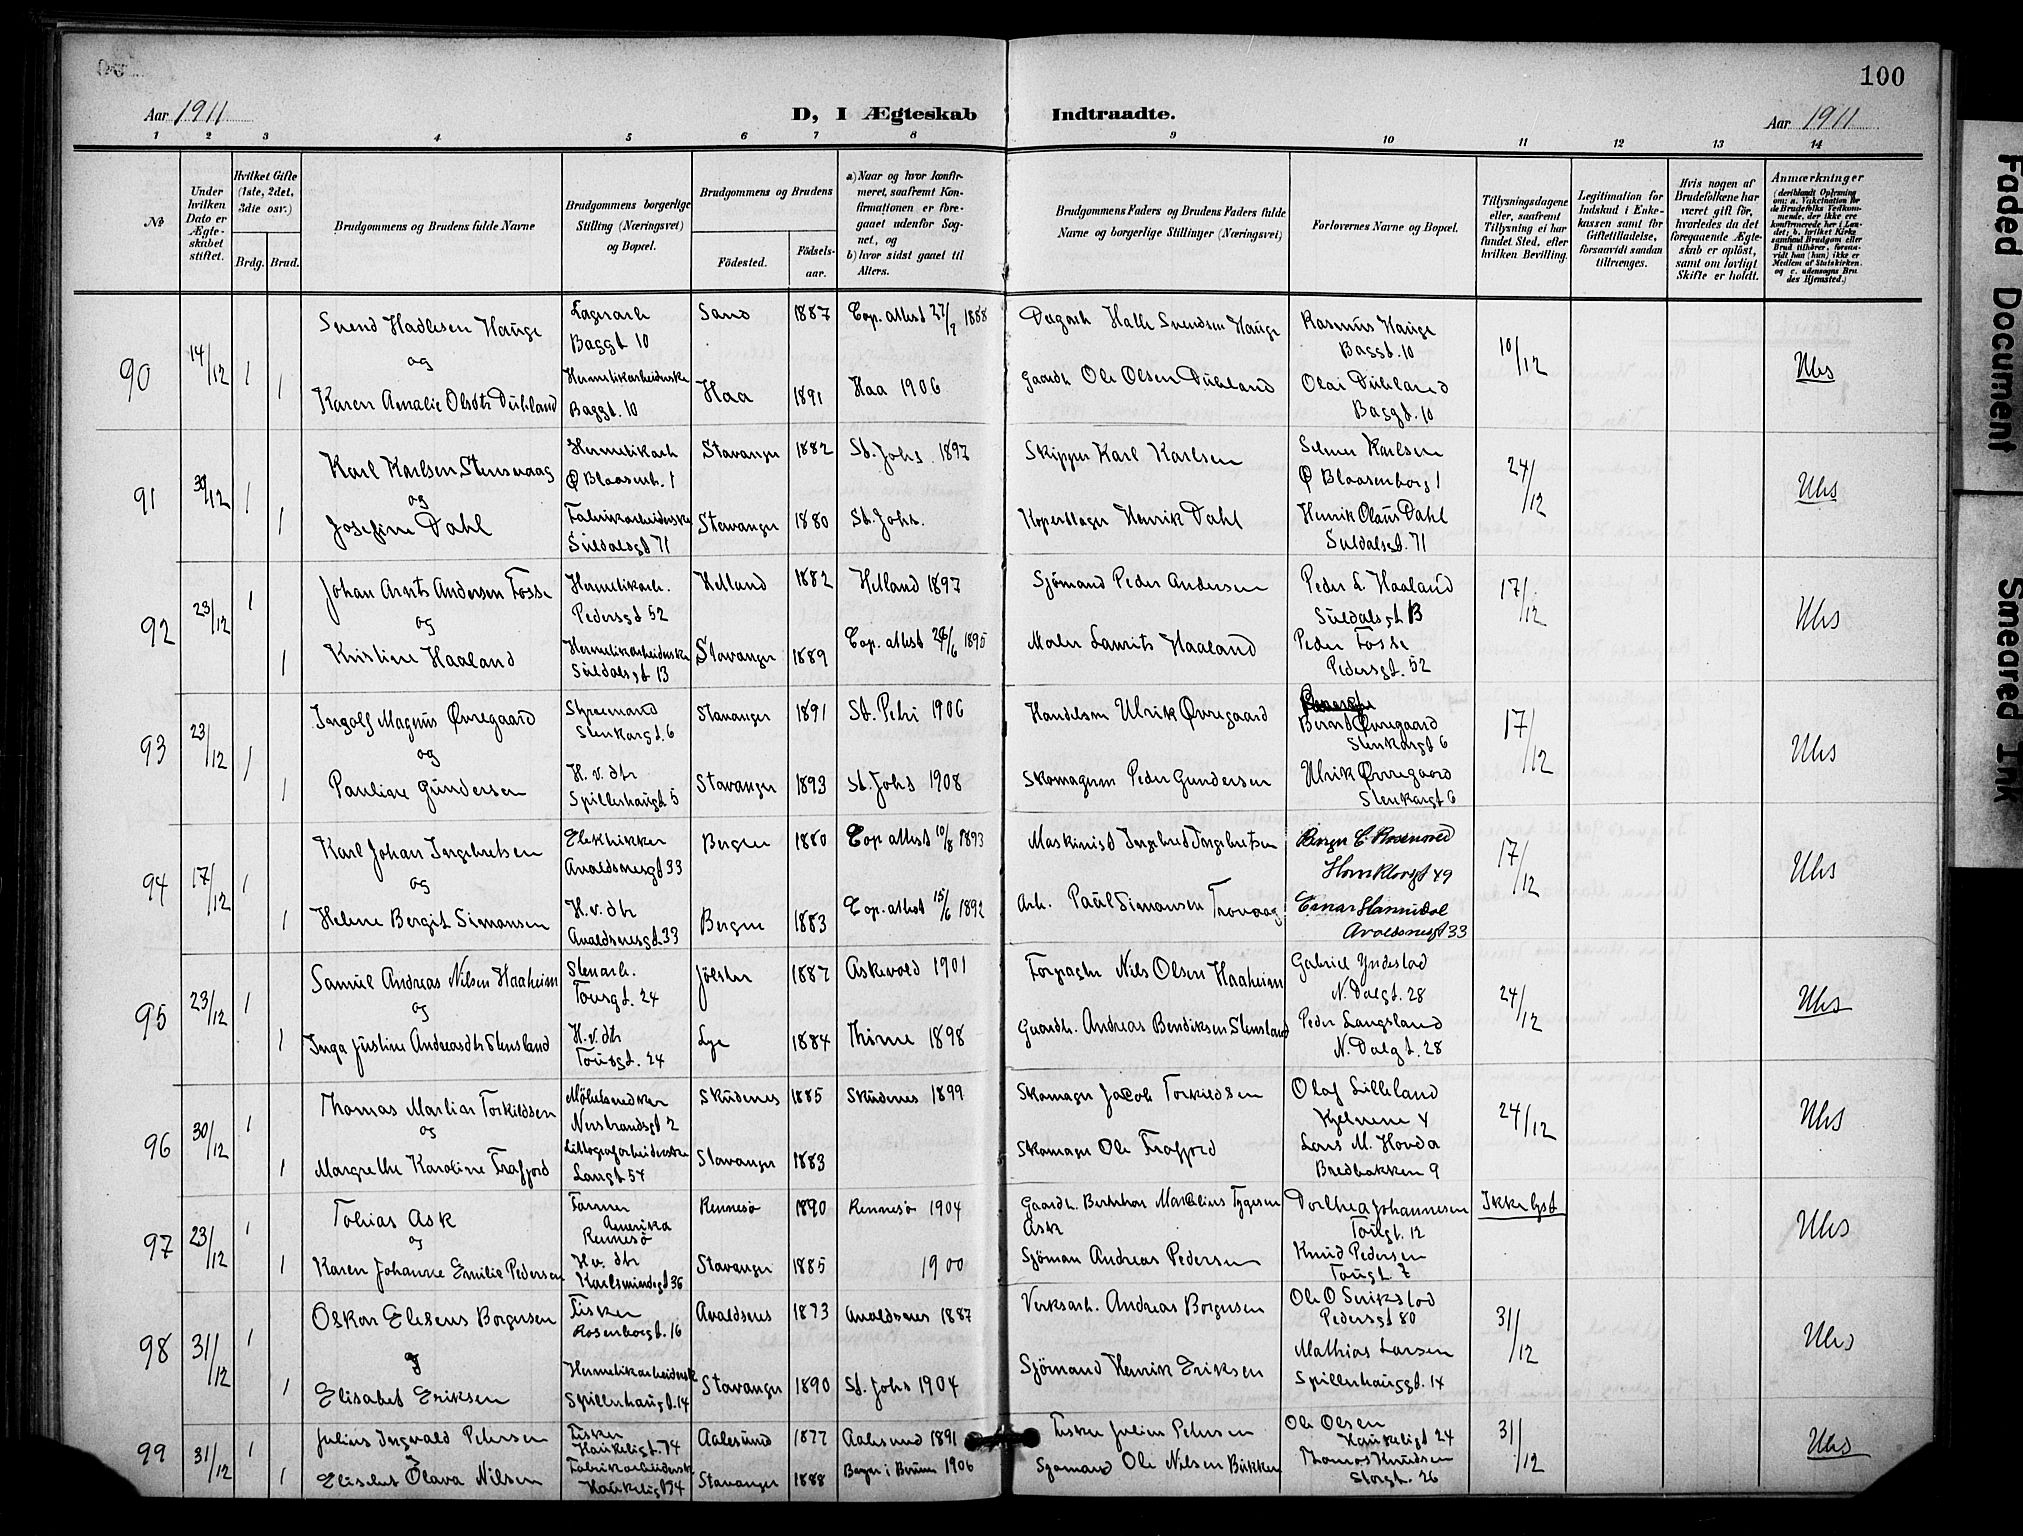 100
Aar 1911
D, I Ægteskab Indtraadte.
Aar 1911
1 2 3 4 5 6 7 8 9 10 11 12 13 14
No
Under hvilken Dato er Ægteskabet stiftet.
Hvilket Gifte (1ste, 2det, 3die osv.)
Brdg. Brud.
Brudgommens og Brudens fulde Navne
Brudgommens borgerlige Stilling (Næringsvei) og Bopæl.
Brudgommens og Brudens
Födested.
Födselsaar.
a) Naar og hvor konfirmeret, saafremt Konfirmationen er foregaaet udenfor Sognet, og
b) hvor sidst gaaet til Alters.
Brudgommens Faders og Brudens Faders fulde Navne og borgerlige Stillinger (Næringsvei)
Forlovernes Navne og Bopæl.
Tillysningsdagene eller, saafremt Tillysning ei har fundet Sted, efter hvilken Bevilling.
Legitimation for Indskud i Enkekassen samt for Giftetilladelse, forsaavidt saadan tiltrænges.
Hvis nogen af Brudefolkene har været gift før, hvorledes da det foregaaende Ægteskab er oplöst, samt om lovligt Skifte er holdt.
Anmærkninger
(deriblandt Oplysning om: a. Vakcination for de Brudefolks Vedkommende, der ikke ere konfirmerede her i Landet; b. hvilket Kirkesamfund Brudgom eller Brud tilhörer, forsaavidt han (hun) ikke er Medlem af Statskirken. og c. udensogns Brudes Hjemsted.)
90 14/12 1 Svend Hadlesen Hauge Lagerarb Sand 1887 Cop. attest 27/9 1888 Halle Svendsen Hauge Rasmus Hauge 10/12
og Baggt 10 Baggt. 10
1 Karen Amalie Olsdtr Dubland Hermetikarbeiderske Haa 1891 Haa 1906 Gaardb Ole Olsen Dubland Olai Dubland
Baggt. 10 Baggt. 10
91 30/12 1 Karl Karlsen Stensvaag Hermetikarb Stavanger 1882 St. Johs. 1897 Skipper Karl Karlsen Selmer Karlsen 24/12
og Ø Blaasenb. 1 Ø Blaasenborg 1
1 Josefine Dahl Fabrikarbeiderske Stavanger 1880 St. Johs. Henrik Dahl Henrik Olaus Dahl
Suldalsgt 71 Suldalsgt. 71
92 23/12 1 Johan Arnts Andersen Fosse Hermetikarb. Hetland 1882 Hetland 1897 Sjömand Peder Andersen Peder L. Haaland 17/12
og Pedersgt 52 Suldalsgt 13
1 Kristine Haaland Hermetikarbeiderske Stavanger 1889 Cop. attest 1895 Maler Laurits Haaland Peder Fosse
Suldalsgt 13 Pedersgt. 52
93 23/12 1 Ingolf Magnus Øvregaard Styremand Stavanger 1891 St. Petri 1906 Handelsm Ulrik Øvregaard Bernt Øvregaard 17/12
og Stenkargt. 6 Stenkargt 6
1 Pauline Gundersen H. v. dtr Stavanger 1893 St. Johs 1908 Skomagerm Peder Gundersen Ulrik Øvregaard
Spillerhaugt. 5 Stenkargt 6
94 17/12 1 Karl Johan Ingebretsen Elektriker Bergen 1880 Cop attest 10/8 1893 Maskinist Ingebret Ingebretsen 17/12
og Avaldsnesgt 33 49
1 Helene Bergit Simonsen H. v. dtr Bergen 1883 Cop. attest 15/6 1892 Arb. Paul Simonsen Tronvaag Einar Hannisdal
Avaldsnesgt. 33 Avaldsnesgt 33
95 23/12 1 Samuel Andreas Nilsen Haaheim Stenarb. Jölster 1887 Askevold 1901 Forpagter Nils Olsen Haaheim Gabriel Yndestad 24/12
og Tougt. 24 N. Dalgt. 28
1 Inga Justine Andreasdtr Stensland H. v. dtr Lye 1884 Thime 1898 Gaardb. Andreas Bendiksen Stensland Peder Langsland
Tougt. 24 N. Dalgt. 28
96 30/12 1 Thomas Martias Torkildsen Möbelsnedker Skudenes 1885 Skudenes 1899 Skomager Jacob Torkildsen Olaf Lilleland 24/12
og Nerstrandsgt 2 Kjelvene 4
1 Margrethe Karoline Frafjord Lithografarbeiderske Stavanger 1883 Skomager Ole Frafjord Lars M. Hovda
Langt 54 Bredbakken 9
97 23/12 1 Tobias Ask Farmer Rennesö 1890 Rennesö 1904 Gaardb. Berthon Marselius Tygesen Ask Dorthea Johannesen Ikke lyst
og Amerika Rennesö Tougt. 12
1 Karen Johanne Emilie Pedersen H. v. dtr Stavanger 1885 1900 Sjöman Andreas Pedersen Knud Pedersen
Karlsmindegt 36 Tougt. 7
98 31/12 1 Oskar Eliseus Borgersen Fisker Avaldsnes 1873 Avaldsnes 1887 Verksarb. Andreas Borgersen Ole O Svikstad 31/12
og Rosenborgt. 16 Pedersgt 80
1 Elisabet Eriksen Hermetikarbeidersk Stavanger 1890 St. Johs 1904 Sjömand Henrik Eriksen Mathias Larsen
Spillerhaugt. 14 Spillerhauggt. 14
99 31/12 1 Julius Ingvald Petersen Fisker Aalesund 1877 Aalesund 1891 Fisker Julius Petersen Ole Olsen 31/12
og Haukeligt. 74 Haukeligt 24
1 Elisabet Olava Nilsen Fabrikarbeiderske Stavanger 1888 1906 Sjömand Ole Nilsen Bukken Thomas Knudsen
Haukeligt 74 Storgt. 26
Faded Document
Smeared Ink